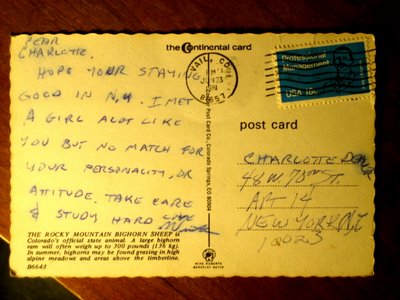 DEAR
CHARLOTTE,
HOPE YOUR STAYING
GOOD IN N.Y. I MET
A GIRL ALOT LIKE
YOU BUT NO MATCH FOR
YOUR PERSONALITY, OR
ATTITUDE. TAKE CARE
& STUDY HARD
THE ROCKY MOUNTAIN BIGHORN SHEEP is
Colorado's official state animal. A large bighorn
ram will often weigh up to 300 pounds (136 kg).
In summer, bighorns may be found grazing in high
alpine meadows and areas above the timberline.
B6643
the Continental card
Post Card Co., Colorado Springs, CO 80904
MIKE ROBERTS
BERKELEY 94710
VAIL, CO.
PM
23
1981
81657
Professional
Management
USA 18c
post card
CHARLOTTE
APT 14
NEW YORK NY
10023